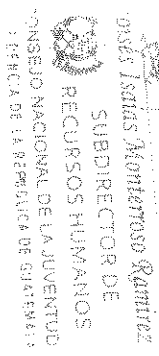 Isaías Montenroso Ramírez
SUBDIRECTOR DE
RECURSOS HUMANOS
CONSEJO NACIONAL DE LA JUVENTUD
DE LA REPUBLICA DE GUATEMALA